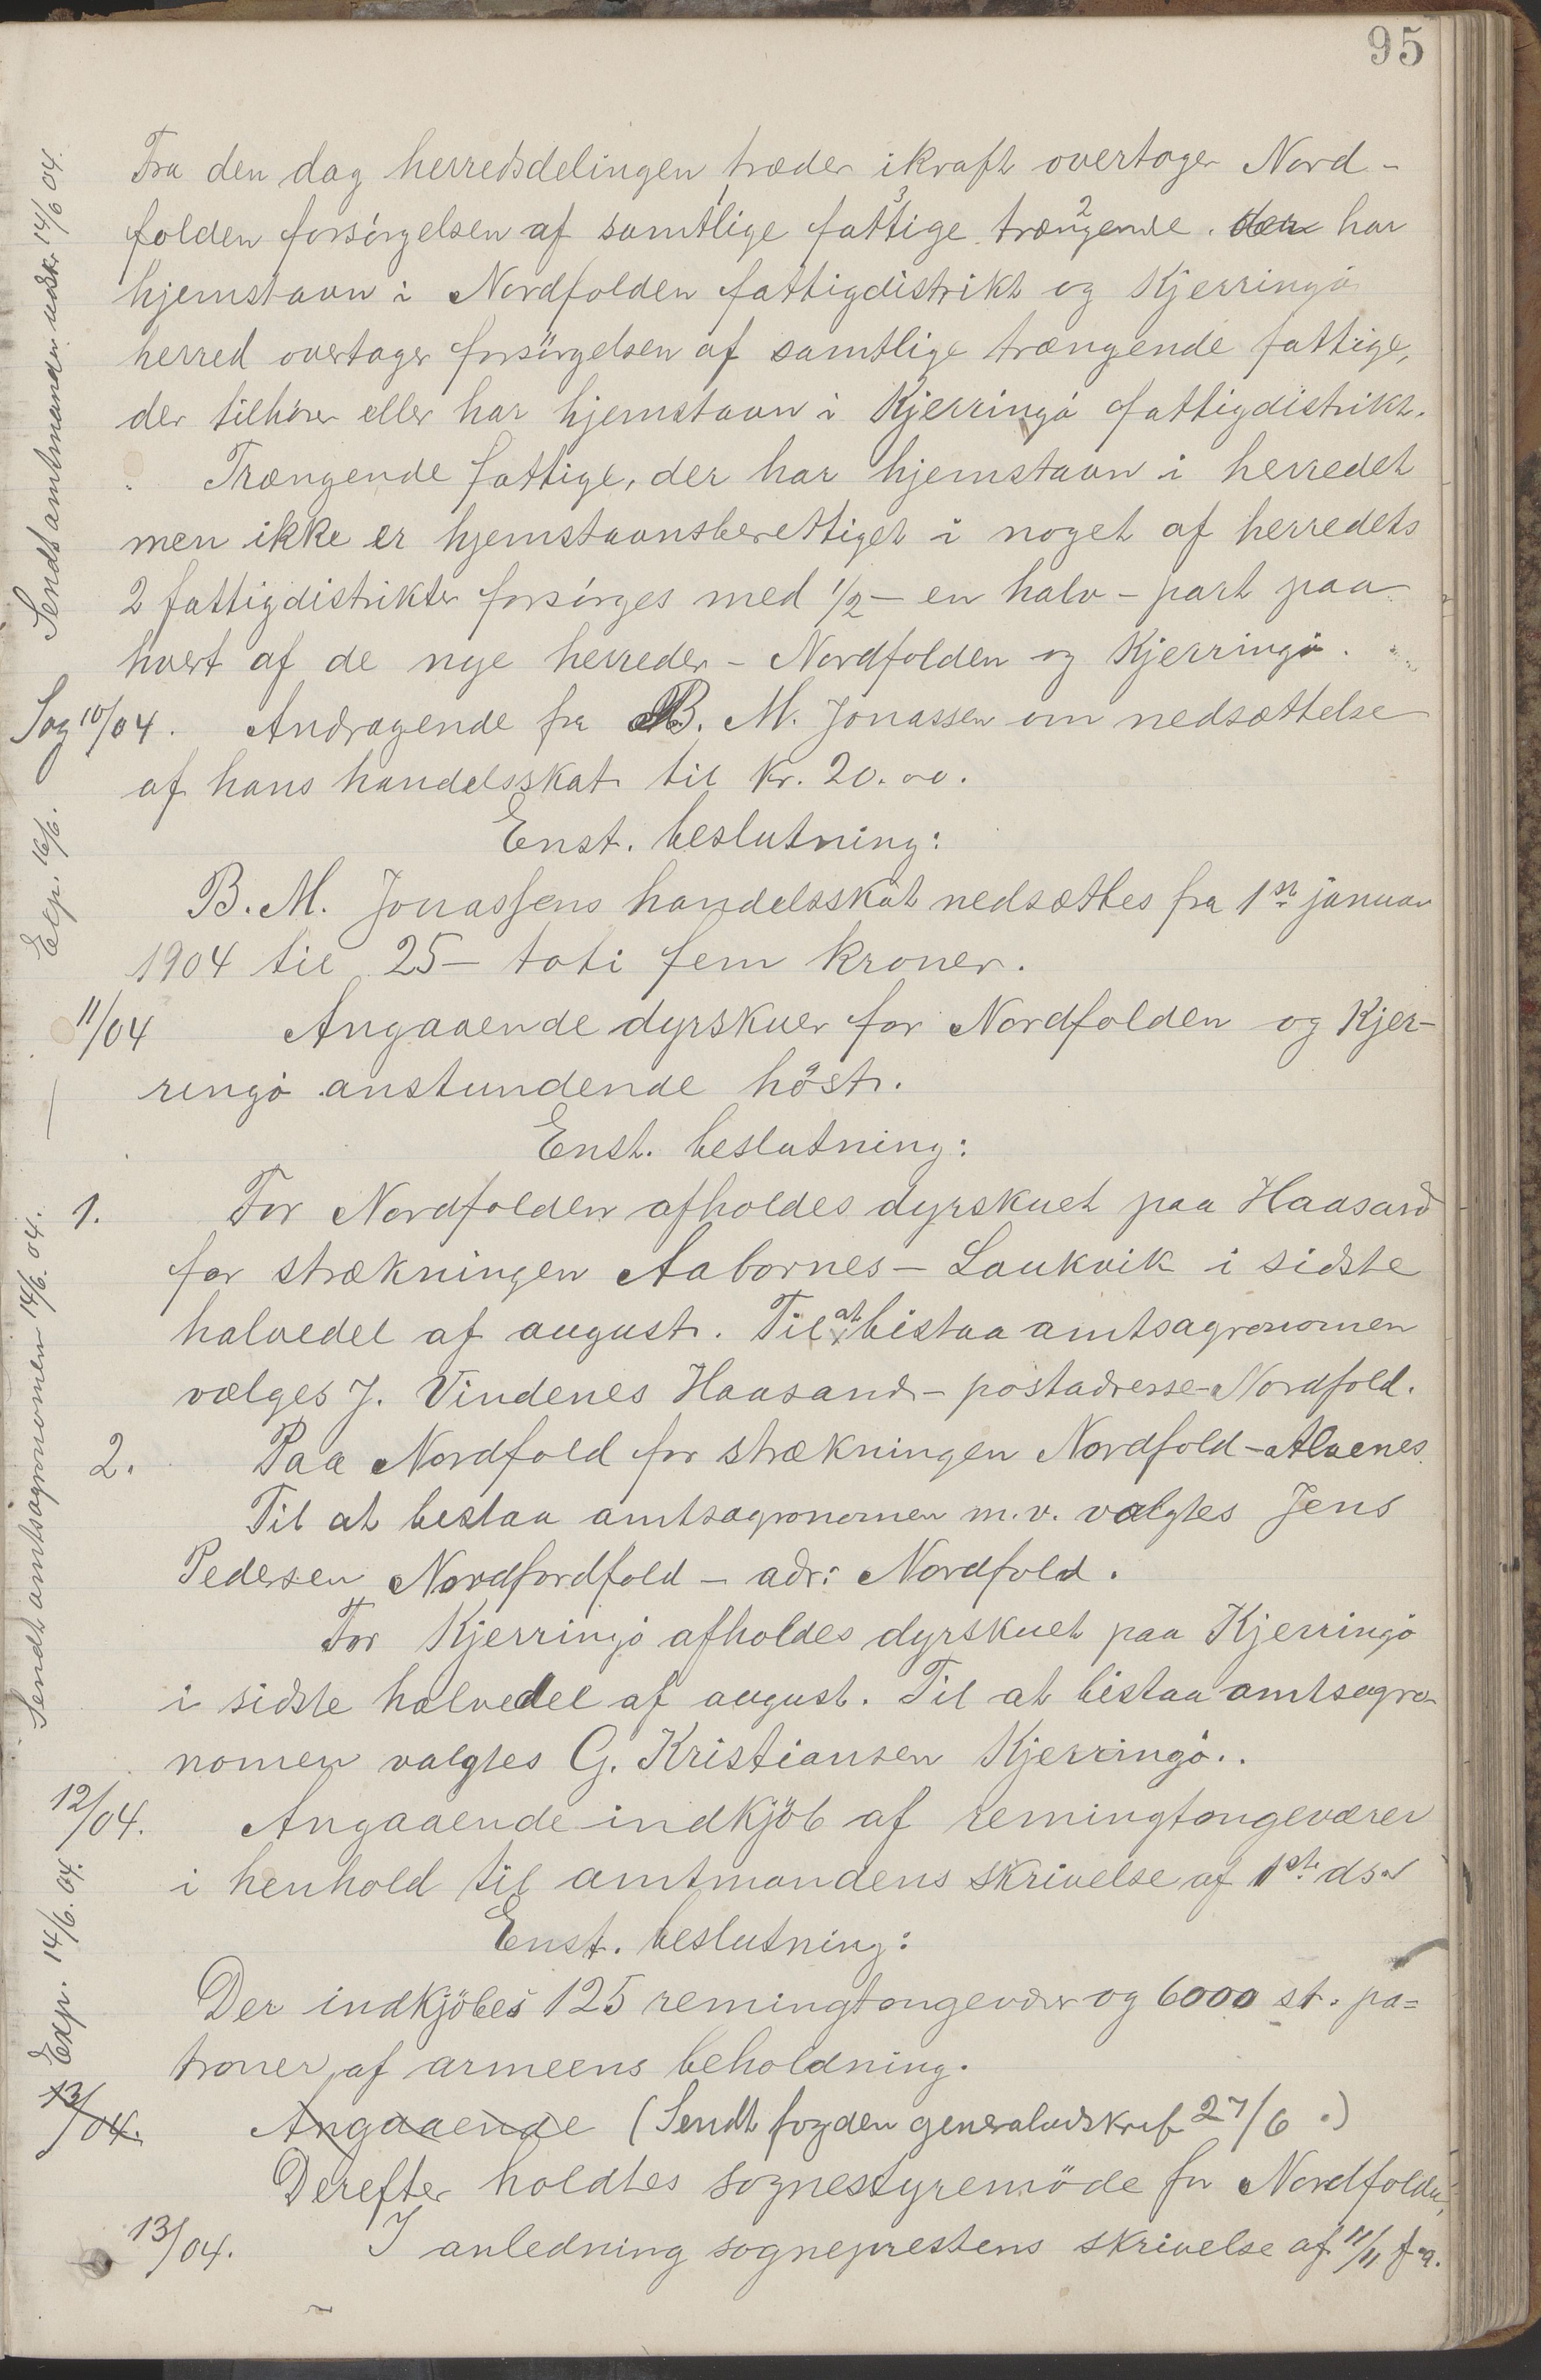 95
Fra den dag herredsdelingen træder ikraft overtager Nord-
folden forsørgelsen af samtlige fattige trængende der har
hjemstavn i Nordfolden fattigdistrikt og Kjerringö
herred overtager forsörgelsen af samtlige trængende fattige,
der tilhører eller har hjemstavn i Kjerringö fattigdistrikt.
Trængende fattige, der har hjemstavn i herredet
men ikke er hjemstavnsberettiget i noget af herredets
2 fattigdistrikter forsörges med 1/2 - en halv - part paa
hvert af de nye herreder - Nordfolden og Kjerringö.
Sendt amtmanden udskr 14/6 04.
Sag 10/04. Andragende fra B. M. Jonassen om nedsættelse
af hans handelsskat til kr. 20.00.
Enst. beslutning:
B. M. Jonassens handelsskat nedsættes fra 1ste januar
1904 til 25 - toti fem kroner.
Exp. 16/6.
11/04 Angaaende dyrskuer for Nordfolden og Kjer-
ringö anstundende höst.
Enst. beslutning:
1. For Nordfolden afholdes dyrskuet paa Haasand
for strækningen Aabornes - Laukvik i sidste
halvedel af august. Til at bistaa amtsagronomen
vælges J. Vindenes Haasand - postadresse Nordfold.
2. Paa Nordfold for strækningen Nordfold - Alvenes.
Til at bistaa amtsagronomen m.v. valgtes Jens
Pedersen Nordfordfold - adr: Nordfold.
For Kjerringö afholdes dyrskuet paa Kjerringö
i sidste halvedel af august. Til at bistaa amtsagro-
nomen valgtes G. Kristiansen Kjerringö..
Sendt amtsagronomen 14/6. 04.
12/04. Angaaende indkjöb af remingtongeværer
i henhold til amtmandens skrivelse af 1ste ds.
Enst. beslutning:
Der indkjöbes 125 remingtongeværer og 6000 st. pa=
troner af armeens beholdning.
Exp. 14/6. 04.
13/04. Angaaende (Sendt fogden generaludskrift 27/6 .)
Derefter holdtes sognestyremöde for Nordfolden,
13/04. I anledning sogneprestens skrivelse af 11/11 f.a.